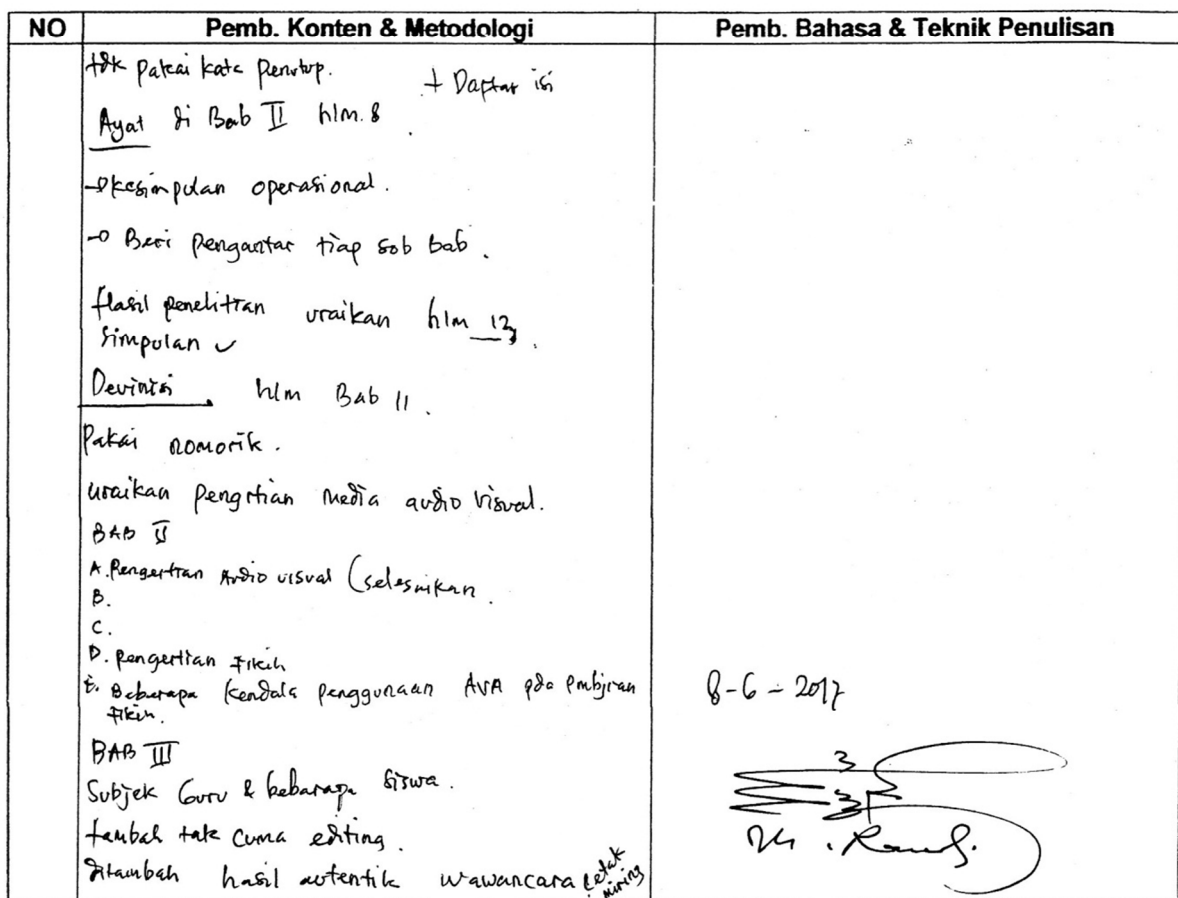 NO Pemb. Konten & Metodologi Pemb. Bahasa & Teknik Penulisan
tdk pakai kata penutup. + Daftar isi
Ayat di Bab II hlm. 8
→ kesimpulan operasional.
→ Beri pengantar tiap sob bab.
Hasil penelitian uraikan hlm 12
simpulan ✓
Devinisi hlm Bab II.
Pakai nomorik.
uraikan pengrtian media audio visual.
BAB II
A. Pengertian Audio visual (selesaikan.
B.
C.
D. pengertian Fikih
E. Beberapa kendala penggunaan AVA pda pmbjran
Fikih.
8-6-2017
BAB III
Subjek Guru & bebarapa siswa.
tambah tak cuma editing.
ditambah hasil autentik wawancara cetak
miring